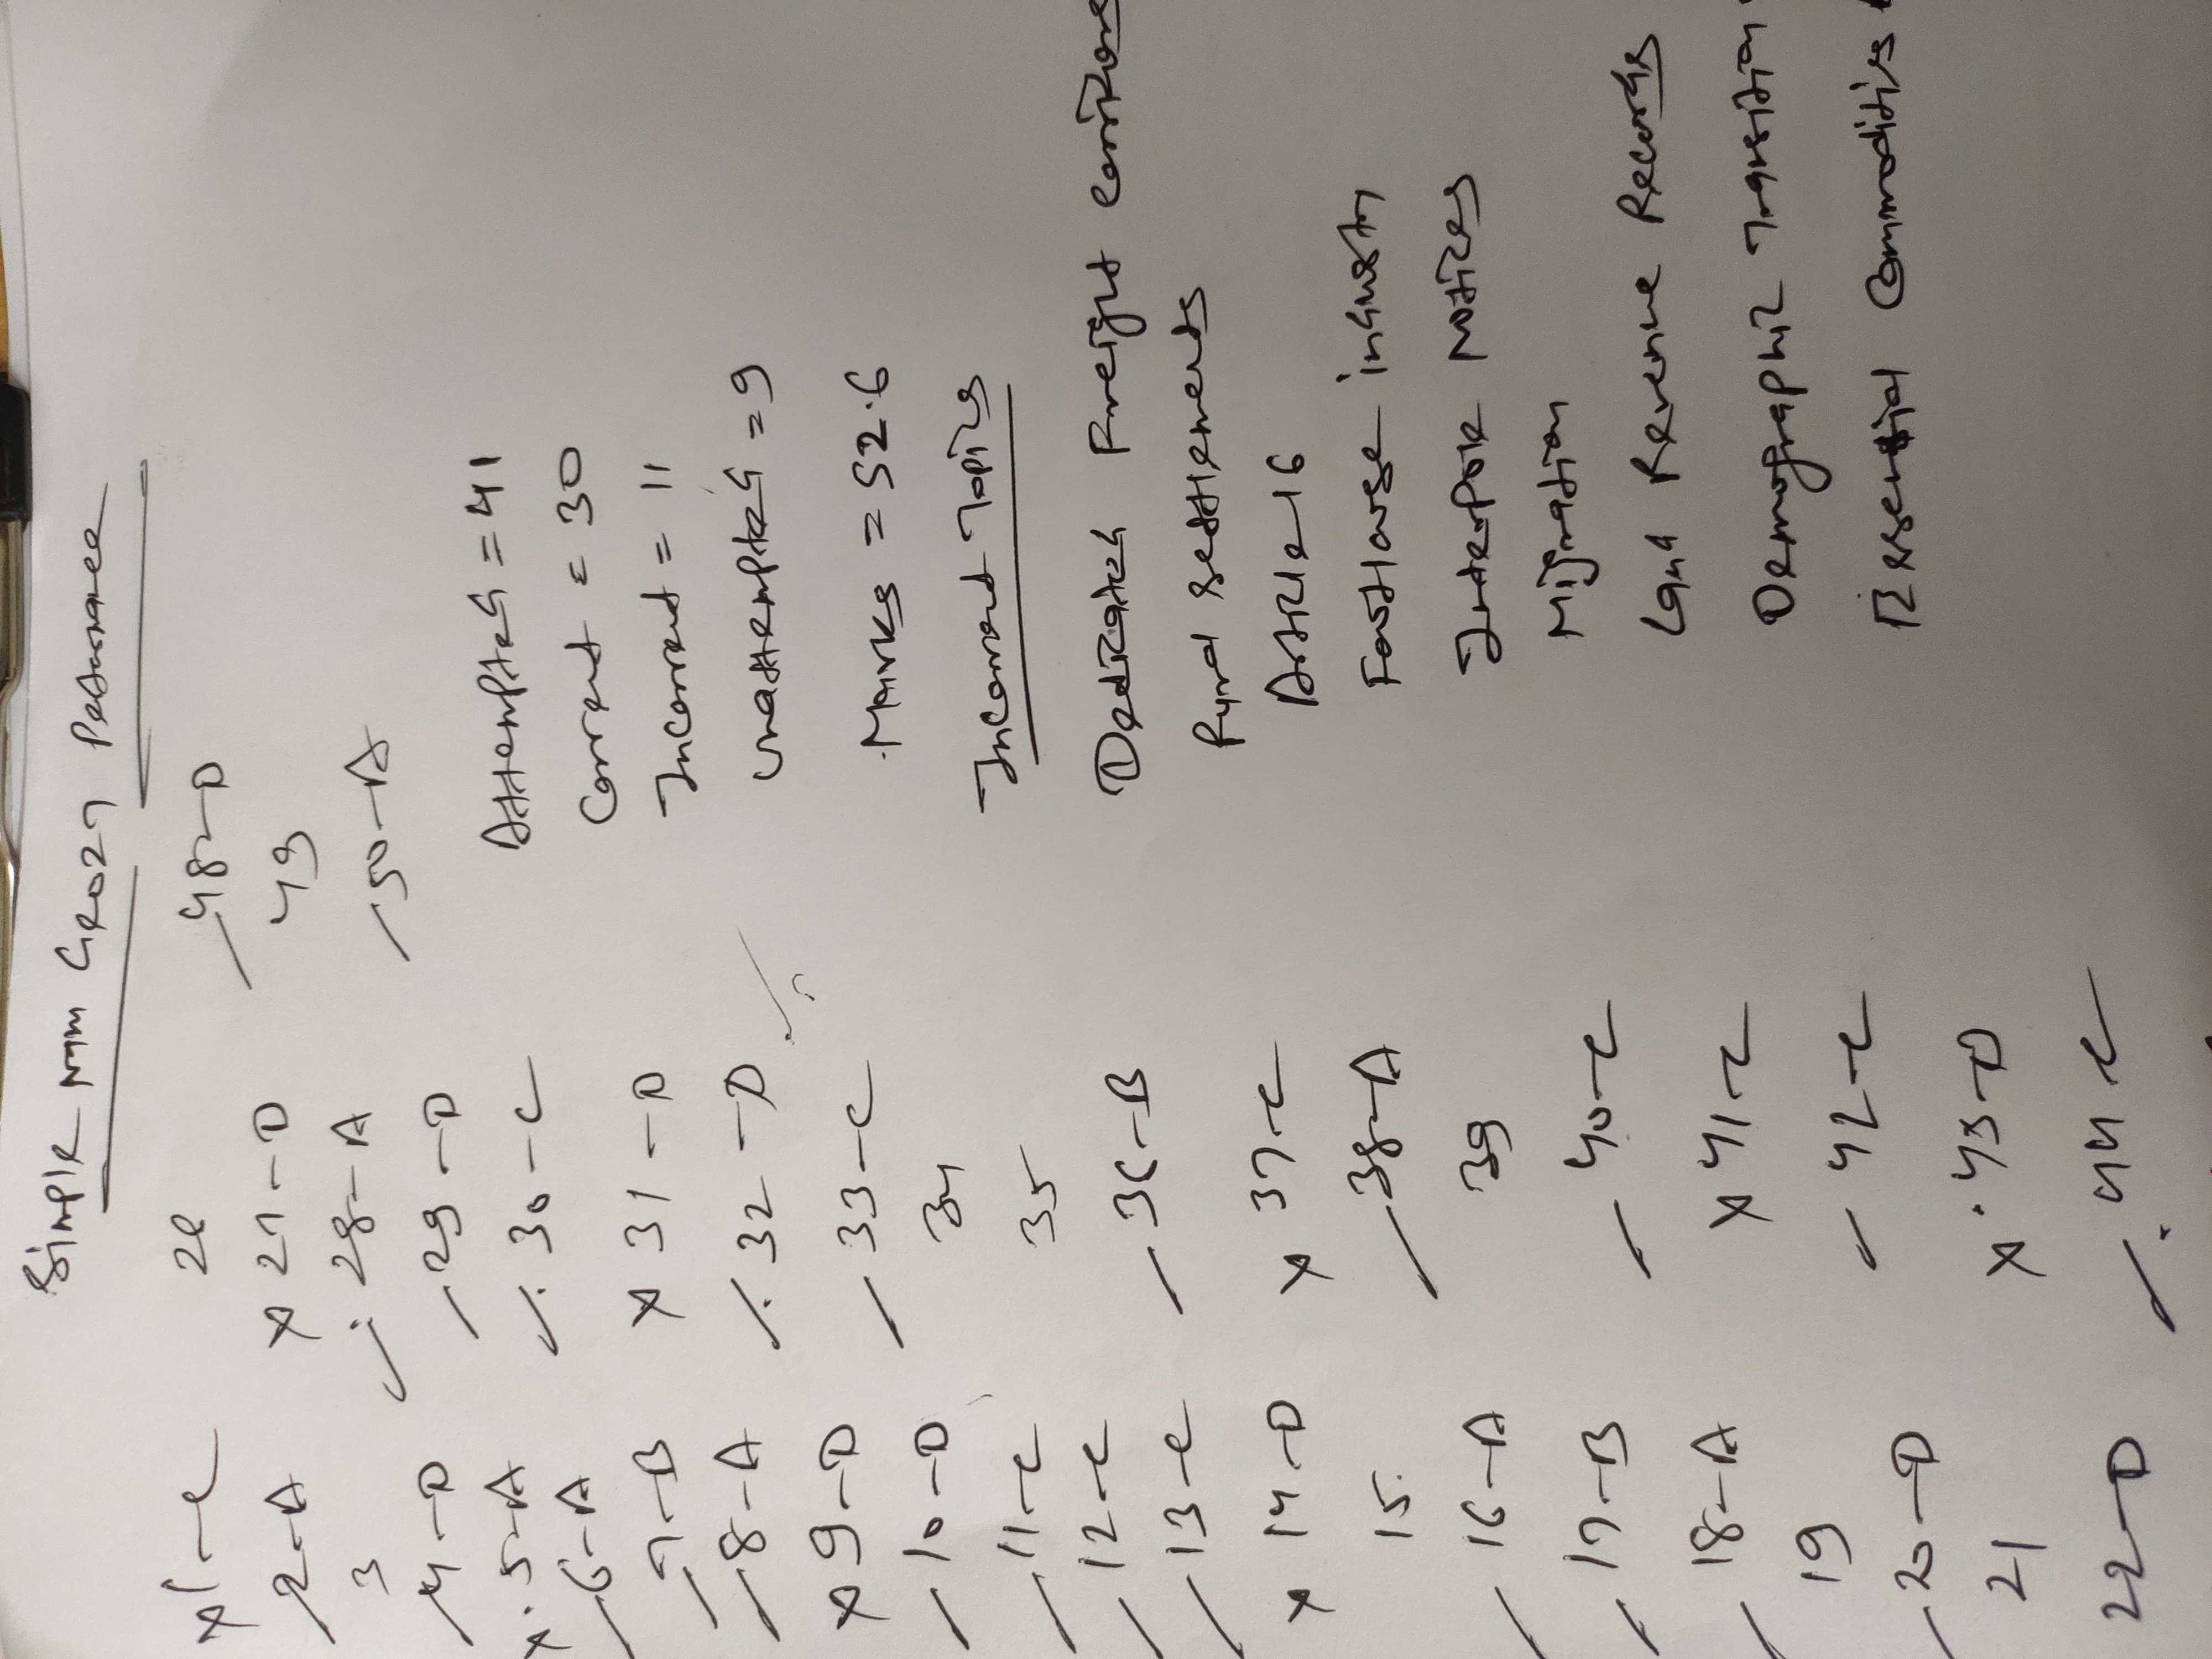 Simple NTM GR027 Performance
x 1-C
2-A
3
4-D
x. 5-A
6-A
7-B
8-A
x 9-D
10-D
11-C
12-C
13-C
x 14-D
15.
16-A
17-B
18-A
19
20-D
21
22-D
26
x 27-D
28-A
29-D
30-C
x 31-D
32-D
33-C
34
35
36-B
x 37-C
38-A
39
40-C
x 41-C
42-C
x 43-D
44 C
48-D
49
50-A
Attempted = 41
Correct = 30
Incorrect = 11
Unattempted = 9
Marks = 52.6
Incorrect Topics
Dedicated Freight corridors
Rural settlements
Article 16
Footloose industry
Interpole Notices
Migration
Land Revenue Records
Demographic Transition
Essential Commodities